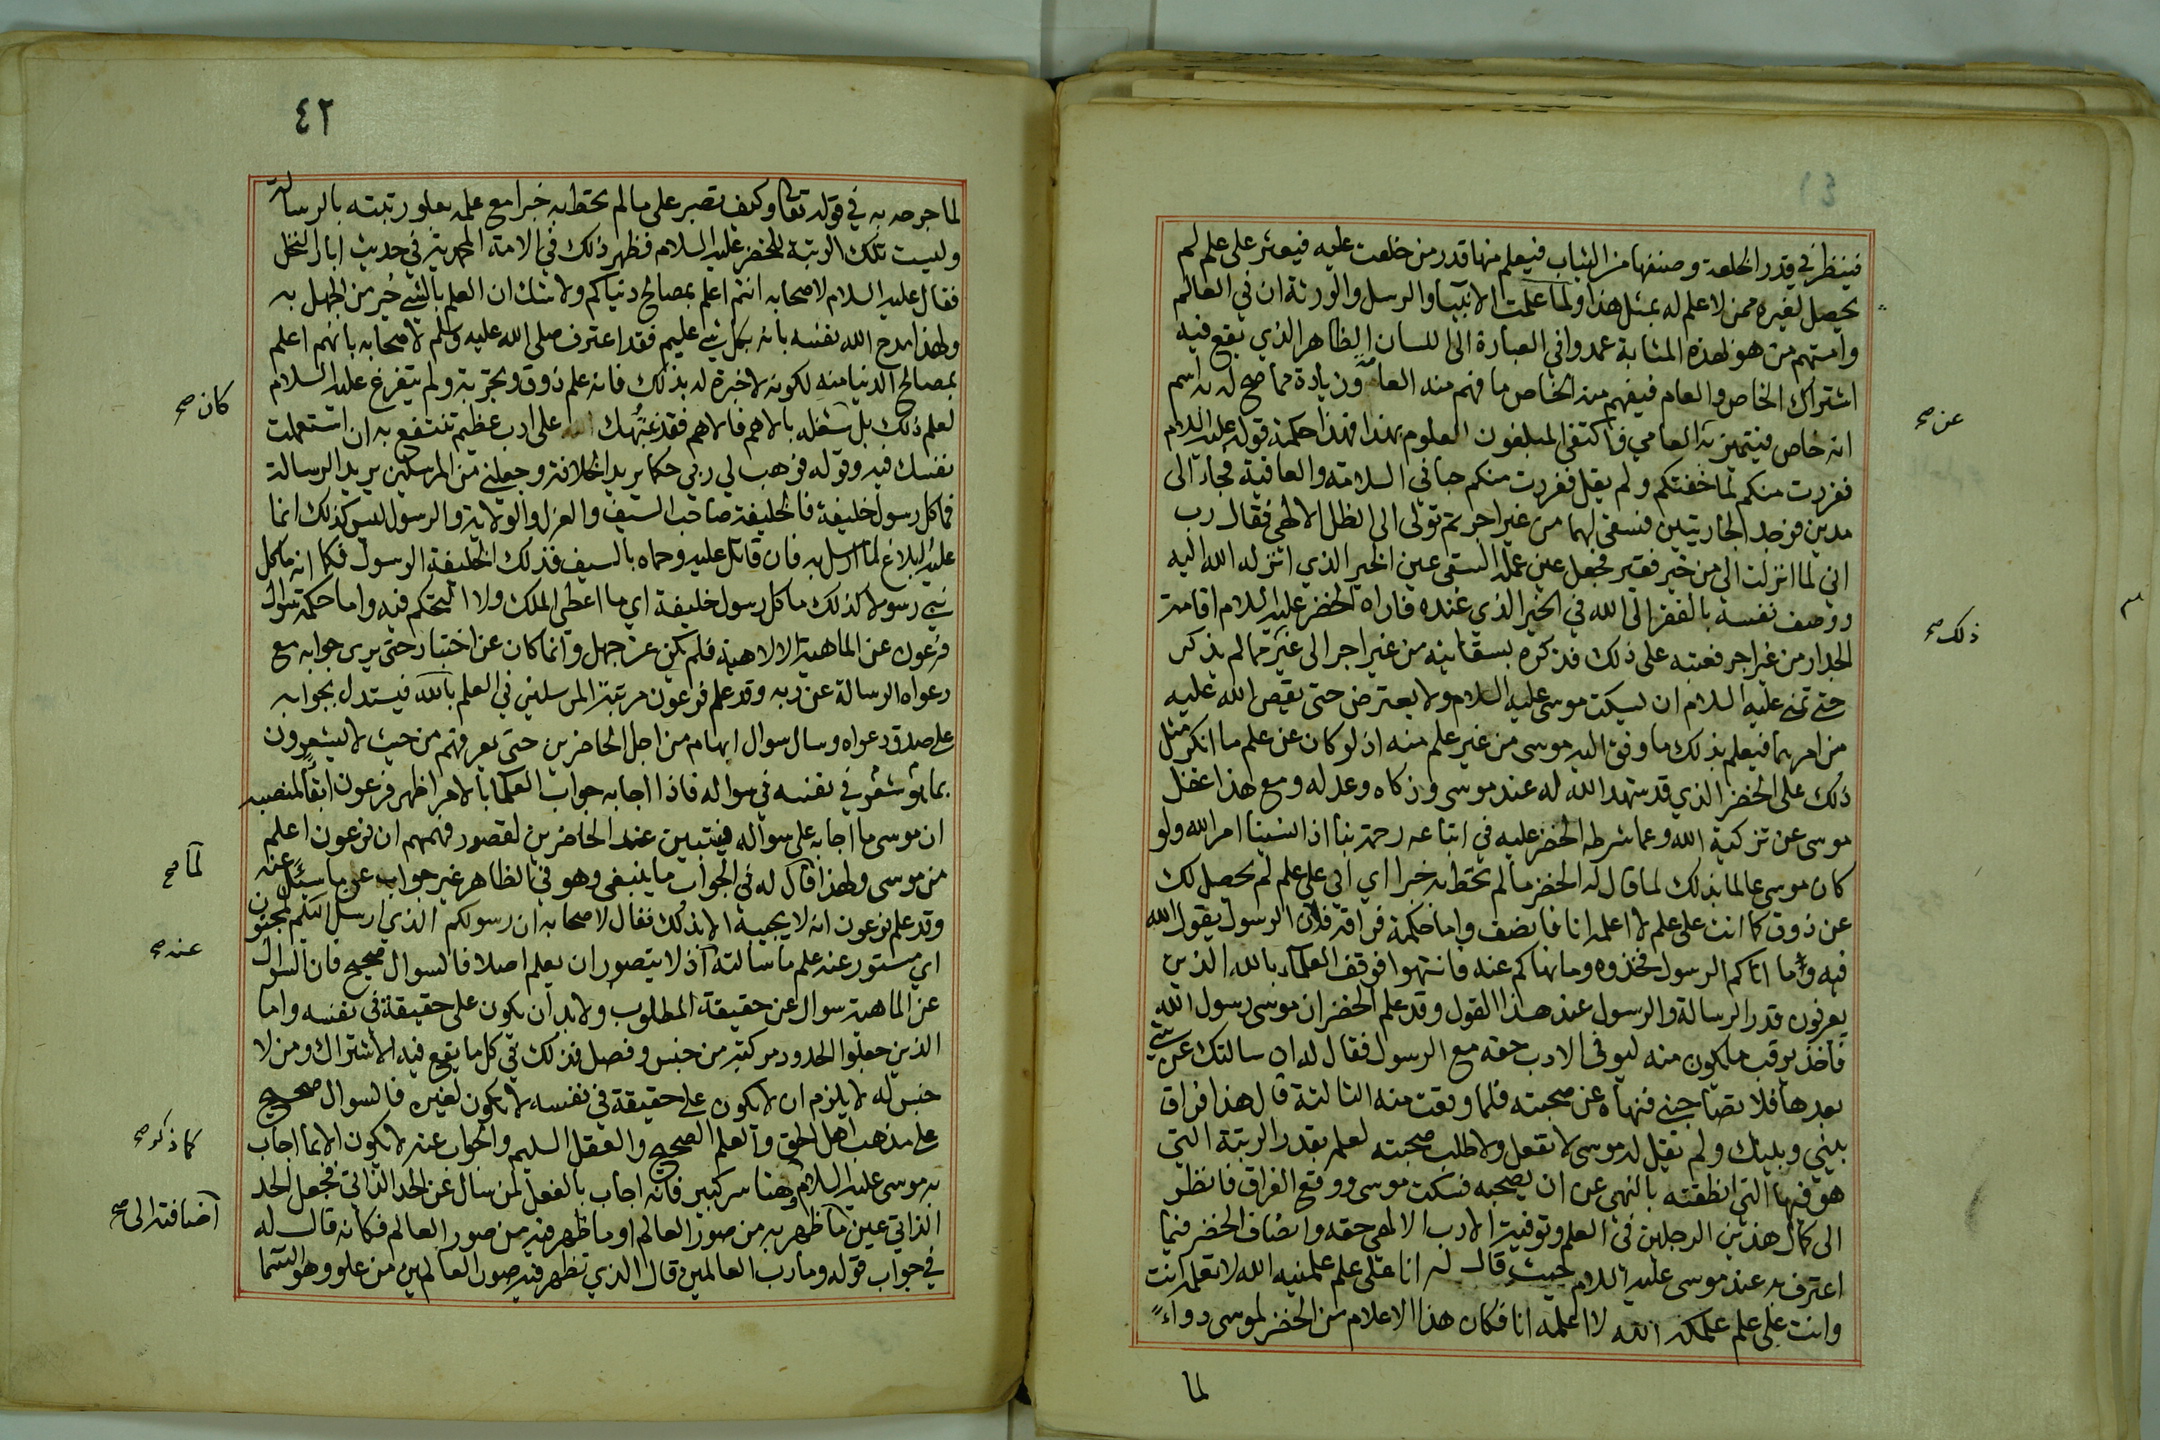 فينظر في قدر الخلعة وصنفها من الثياب فيعلم منها قدر من خلعت عليه فيعثر على علم لم
يحصل لغيره ممن لا علم له بمثل هذا ولما علمت الانبيا والرسل والورثة ان في العالم
وامتهم من هو بهذه المثابة عمدوا في العبارة الى اللسان الظاهر الذي يقع فيه
اشتراك الخاص والعام فيفهم منه الخاص ما فهم منه العامة وزيادة مما صح له به اسم
انه خاص فيتميز به العامي فاكتفى المبلغون العلوم بهذا فهذا حكمة قوله عليه السلام
ففررت منكم لما خفتكم ولم يقل ففررت منكم حبا في السلامة والعافية فجاء الى
مدين فوجد الجاريتين فسقى لهما من غير اجر ثم تولى الى الظل الالهي فقال رب
اني لما انزلت الي من خير فقير فجعل عين عمله السقي عين الخير الذي انزله الله اليه
ووصف نفسه بالفقر الى الله في الخير الذي عنده فاراه الخضر عليه السلام اقامة
الجدار من غير اجر فعتبه على ذلك فذكره بسقايته من غير اجر الى غير ما لم يذكر
حتى تمنى عليه السلام ان يسكت موسى عليه السلام ولا يعترض حتى يقص الله عليه
من امرهما فيعلم بذلك ما وفق اليه موسى من غير علم منه اذ لو كان عن علم ما انكر مثل
ذلك على الخضر الذي قد شهد الله له عند موسى وزكاه وعدله ومع هذا غفل
موسى عن تزكية الله وعما شرطه الخضر عليه في اتباعه رحمة بنا اذا نسينا امر الله ولو
كان موسى عالما بذلك لما قال له الخضر ما لم تحط به خبرا اي اني على علم لم يحصل لك
عن ذوق كما انت على علم لا اعلمه انا فانصف واما حكمة فراقه فلان الرسول يقول الله
فيه وما اتاكم الرسول فخذوه وما نهاكم عنه فانتهوا فوقف العلماء بالله الذين
يعرفون قدر الرسالة والرسول عند هذا القول وقد علم الخضر ان موسى رسول الله
فاخذ يرقب ما يكون منه ليوفي الادب حقه مع الرسول فقال له ان سالتك عن شي
بعدها فلا تصاحبني فنهاه عن صحبته فلما وقعت منه الثالثة قال هذا فراق
بيني وبينك ولم يقل له موسى لا تفعل ولا طلب صحبته لعلمه بقدر الرتبة التي
هو فيها التي انطقته بالنهي عن ان يصحبه فسكت موسى ووقع الفراق فانظر
الى كمال هذين الرجلين في العلم وتوفية الادب الالهي حقه وانصاف الخضر فيما
اعترف به عند موسى عليه السلام حيث قال له انا على علم علمنيه الله لا تعلمه انت
وانت على علم علمكه الله لا اعلمه انا فكان هذا الاعلام من الخضر لموسى دواءً
لما
عن صح
ذلك صح
٤٢
لما جرحه به في قوله تعالى وكيف تصبر على ما لم تحط به خبرا مع علمه بعلو رتبته بالرسالة
وليست تلك الرتبة للخضر عليه السلام فظهر ذلك في الامة المحمدية في حديث ابار النخل
فقال عليه السلام لاصحابه انتم اعلم بمصالح دنياكم ولا شك ان العلم بالشي خير من الجهل به
ولهذا مدح الله نفسه بانه بكل شي عليم فقد اعترف صلى الله عليه وسلم لاصحابه بانهم اعلم
بمصالح الدنيا منه لكونه لا خبرة له بذلك فانه علم ذوق وتجربة ولم يتفرغ عليه السلام
لعلم ذلك بل شغله بالاهم فالاهم فقد نبهتك على ادب عظيم تنتفع به ان استعملت
نفسك فيه وقوله فوهب لي ربي حكما يريد الخلافة وجعلني من المرسلين يريد الرسالة
فما كل رسول خليفة فالخليفة صاحب السيف والعزل والولاية والرسول ليس كذلك انما
عليه البلاغ لما ارسل به فان قاتل عليه وحماه بالسيف فذلك الخليفة الرسول فكما انه ما كل
نبي رسولا كذلك ما كل رسول خليفة اي ما اعطي الملك ولا التحكم فيه واما حكمة سوال
فرعون عن الماهية الالاهية فلم يكن عن جهل وانما كان عن اختبار حتى يرى جوابه مع
دعواه الرسالة عن ربه وقد علم فرعون مرتبة المرسلين في العلم بالله فيستدل بجوابه
على صدق دعواه وسال سوال ايهام من اجل الحاضرين حتى يعرفهم من حيث لا يشعرون
بما هو شعر في نفسه في سواله فاذا اجابه جواب العلما بالامر اظهر فرعون ابقاً لمنصبه
ان موسى ما اجابه على سواله فيتبين عند الحاضرين لقصور فهمهم ان فرعون اعلم
من موسى ولهذا قال له في الجواب ما ينبغي وهو في الظاهر غير جواب عن ما سئل عنه
وقد علم فرعون انه لا يجيبه الا بذلك فقال لاصحابه ان رسولكم الذي ارسل اليكم لمجنون
اي مستور عنه علم ما سالته اذ لا يتصور ان يعلم اصلا فالسوال صحيح فان السوال
عن الماهية سوال عن حقيقة المطلوب ولا بد ان يكون على حقيقة في نفسه واما
الذين جعلوا الحدود مركبة من جنس وفصل فذلك في كل ما يقع فيه الاشتراك ومن لا
جنس له لا يلزم ان لا يكون على حقيقة في نفسه لا تكون لغيره فالسوال صحيح
على مذهب اهل الحق والعلم الصحيح والعقل السليم والجواب عنه لا يكون الا بما اجاب
به موسى عليه السلام وهنا سر كبير فانه اجاب بالفعل لمن سال عن الحد الذاتي فجعل الحد
الذاتي عين ما ظهر به من صور العالم او ما ظهر فيه من صور العالم فكانه قال له
في جواب قوله وما رب العالمين قال الذي تظهر فيه صور العالمين من علو وهو السما
كان صح
لما صح
عنه صح
كما ذكره صح
اضافته الى صح